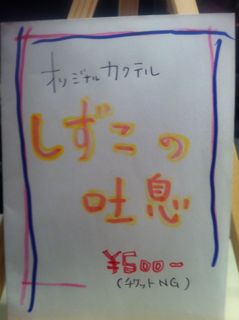 オリジナルカクテル
しずこの
吐息
¥500-
(チケットNG)